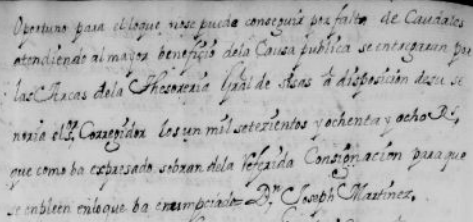 Oportuno para el logue nose puede conseguir por falta de Caudales
atendiendo al mayor benefiçio dela Causa publica se entregaran por
las Arcas dela Thesoreria Gral de sisas a disposicion desu se
noria el Sr. Corregidor los un mil setezientos y ochenta y ocho Rs.
que como ha expresado sobran dela referida Consignacion para que
se enpleen enloque ha Dn. Joseph Martinez.